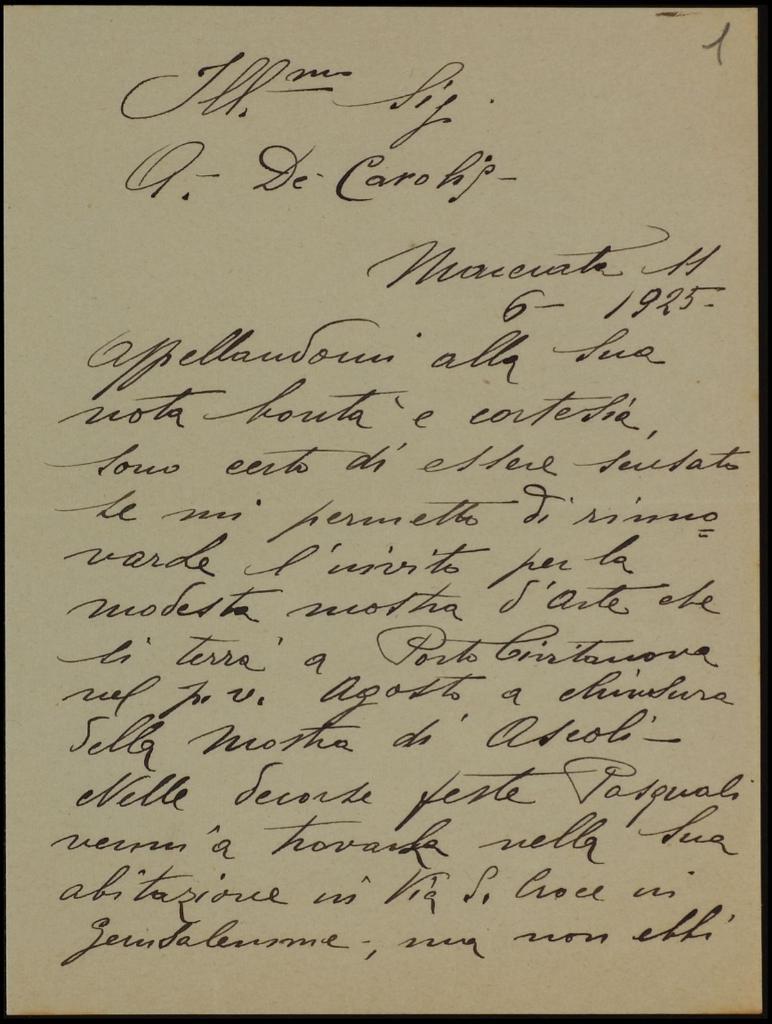 1
Ill.mo Sig.
A. De Carolis -
Macerata 11
6 - 1925 -
Appellandomi alla Sua
nota bontà e cortesia,
sono certo di essere scusato
se mi permetto di rinno=
varle l'invito per la
modesta mostra d'Arte che
si terrà a Porto Civitanova
nel p.v. Agosto a chiusura
della Mostra di Ascoli -
Nelle decorse feste Pasquali
venni a trovarla nella Sua
abitazione in Via S. Croce in
Gerusalemme -, ma non ebbi